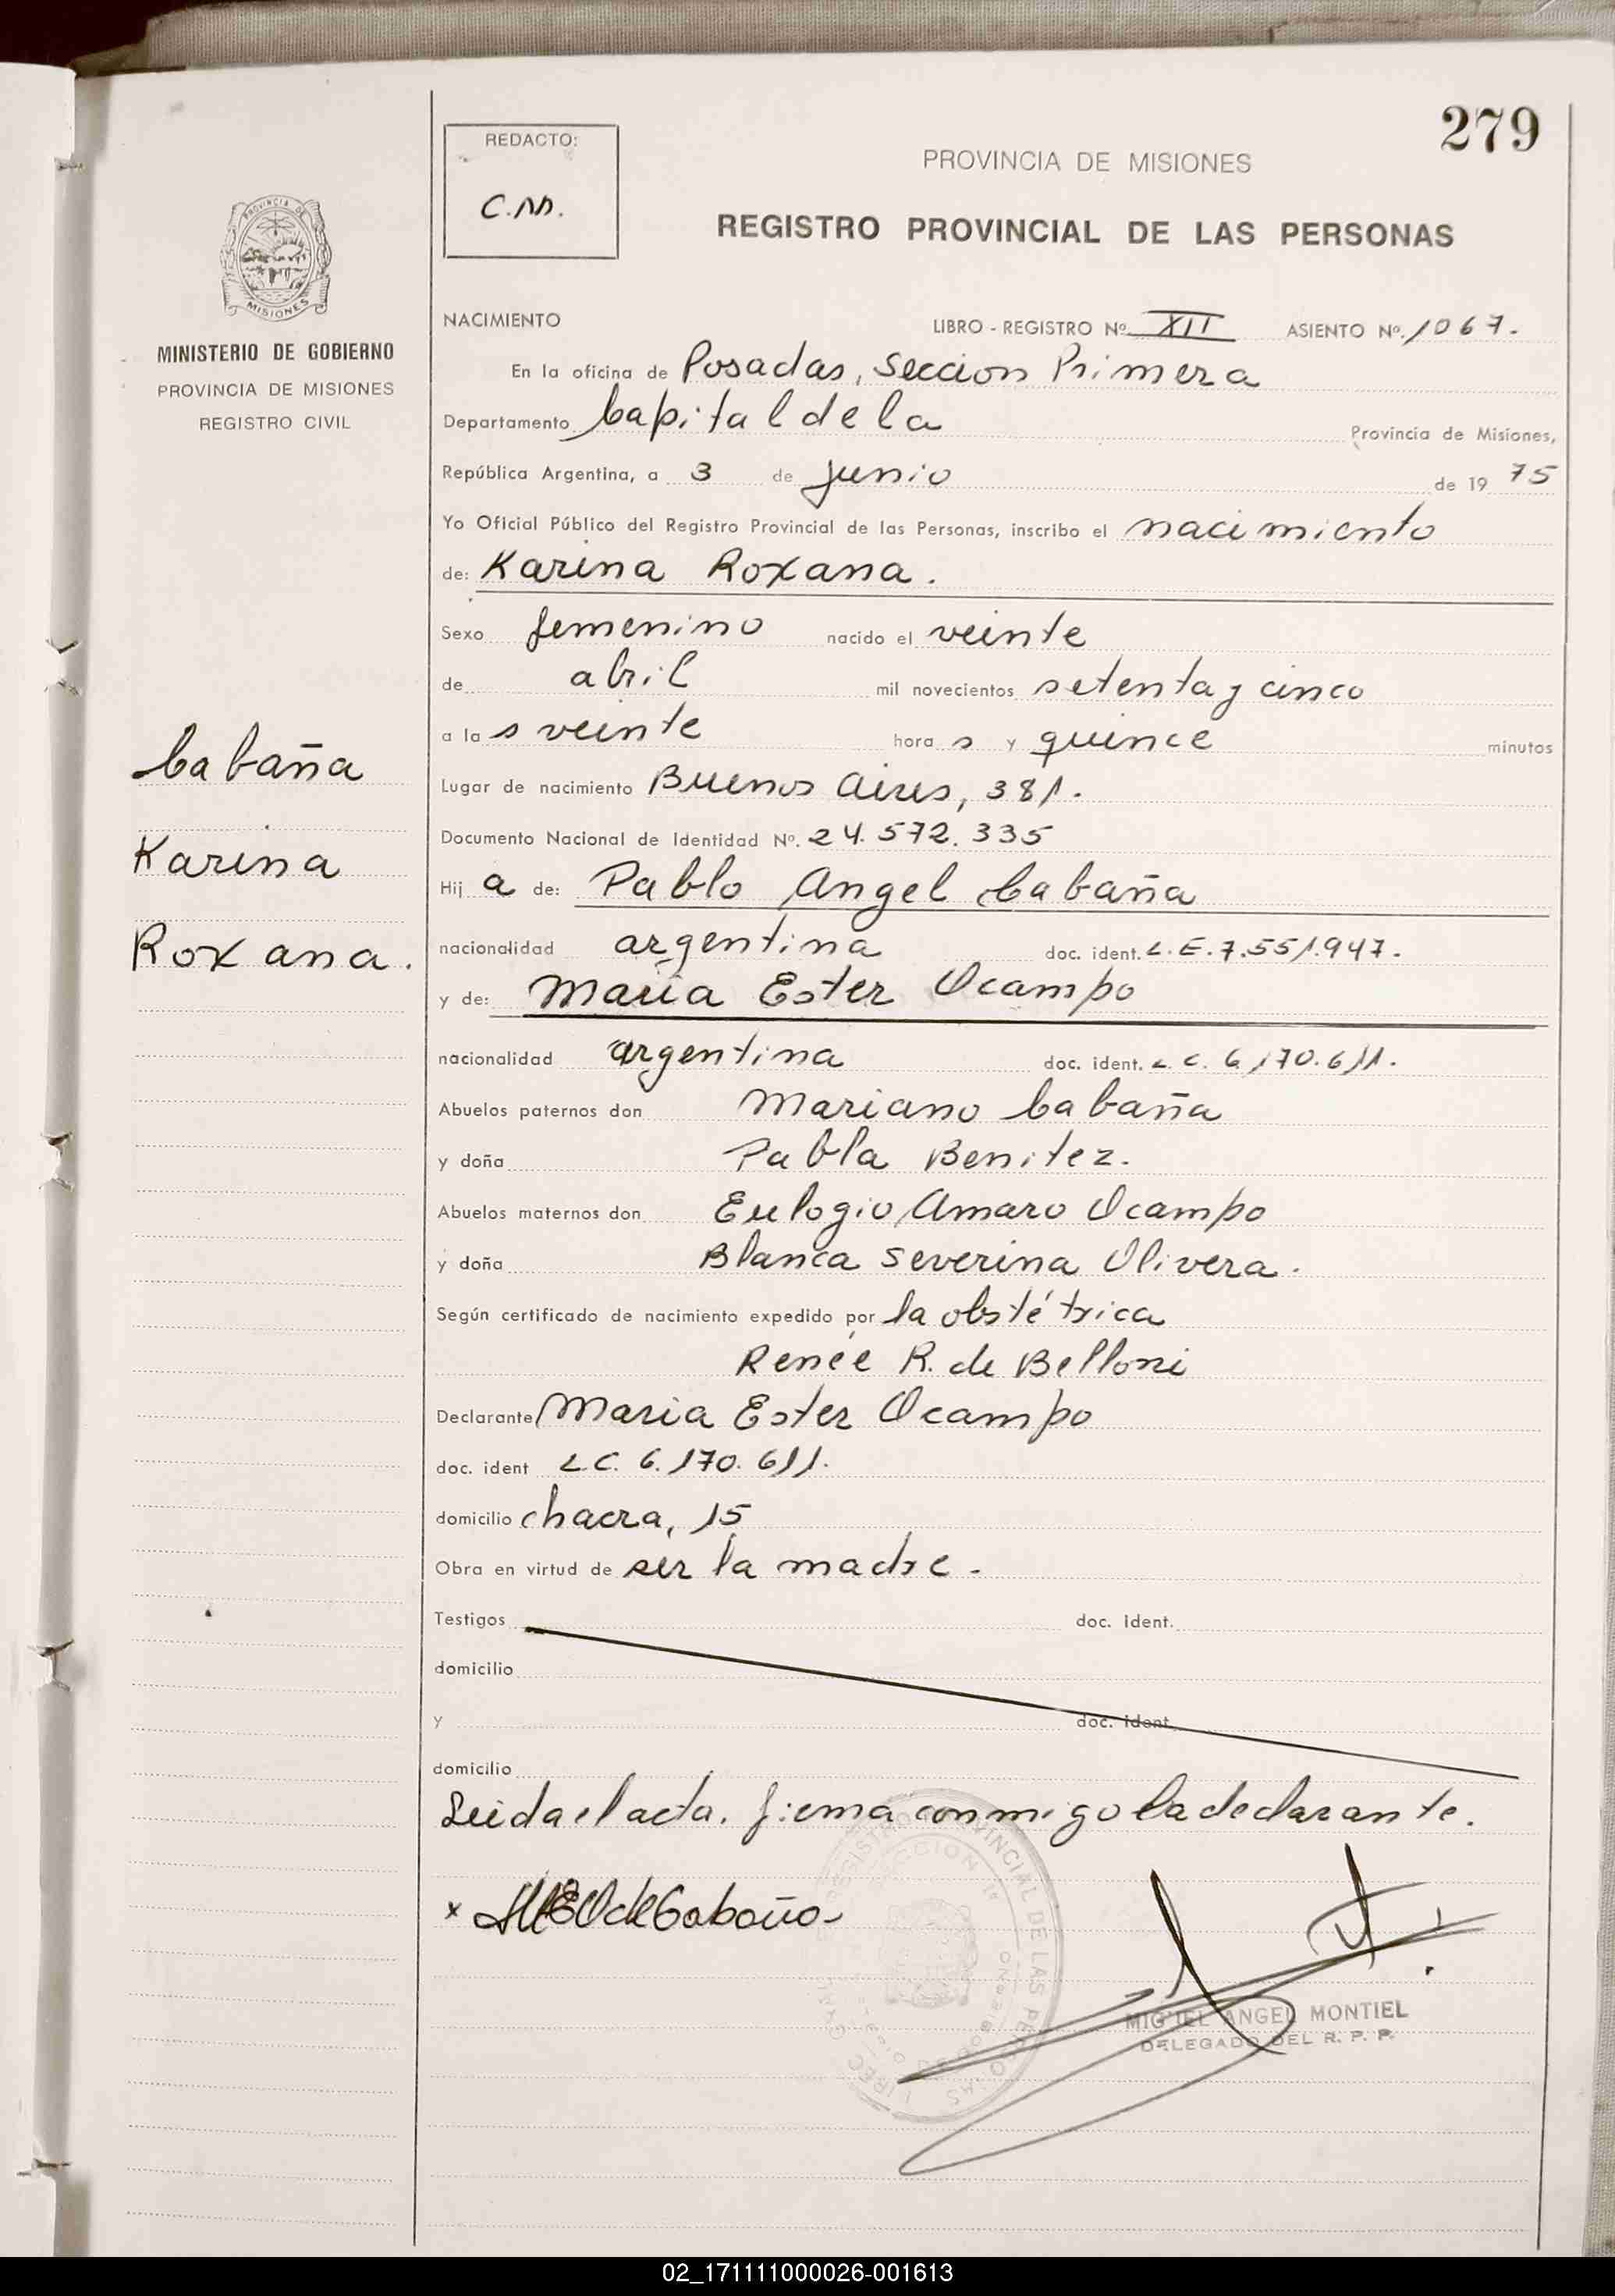 279
REDACTO:
C.M.
PROVINCIA DE MISIONES
REGISTRO PROVINCIAL DE LAS PERSONAS
PROVINCIA DE
MISIONES
MINISTERIO DE GOBIERNO
PROVINCIA DE MISIONES
REGISTRO CIVIL
NACIMIENTO LIBRO - REGISTRO Nº XII ASIENTO Nº. 1067.
En la oficina de Posadas, Seccion Primera
Departamento Capital de la Provincia de Misiones,
República Argentina, a 3 de junio de 19 75
Yo Oficial Público del Registro Provincial de las Personas, inscribo el nacimiento
de: Karina Roxana.
Sexo femenino nacido el veinte
de abril mil novecientos setenta y cinco
a la s veinte hora s y quince minutos
Lugar de nacimiento Buenos Aires, 381.
Documento Nacional de Identidad Nº. 24.572.335
Hij a de: Pablo Angel Cabaña
nacionalidad argentina doc. ident. L.E. 7.551.947.
y de: Maria Ester Ocampo
nacionalidad argentina doc. ident. L.C. 6.170.611.
Abuelos paternos don Mariano Cabaña
y doña Pabla Benitez.
Abuelos maternos don Eulogio Amaro Ocampo
y doña Blanca Severina Olivera.
Según certificado de nacimiento expedido por la obstétrica
Renée R. de Belloni
Declarante Maria Ester Ocampo
doc. ident L.C. 6.170.611.
domicilio chacra, 15
Obra en virtud de ser la madre.
Testigos doc. ident.
domicilio
y doc. ident.
domicilio
Leida el acta, firma conmigo la declarante.
Cabaña
Karina
Roxana.
x MEO de Cabaña
MIGUEL ANGEL MONTIEL
DELEGADO DEL R. P. P.
02_171111000026-001613